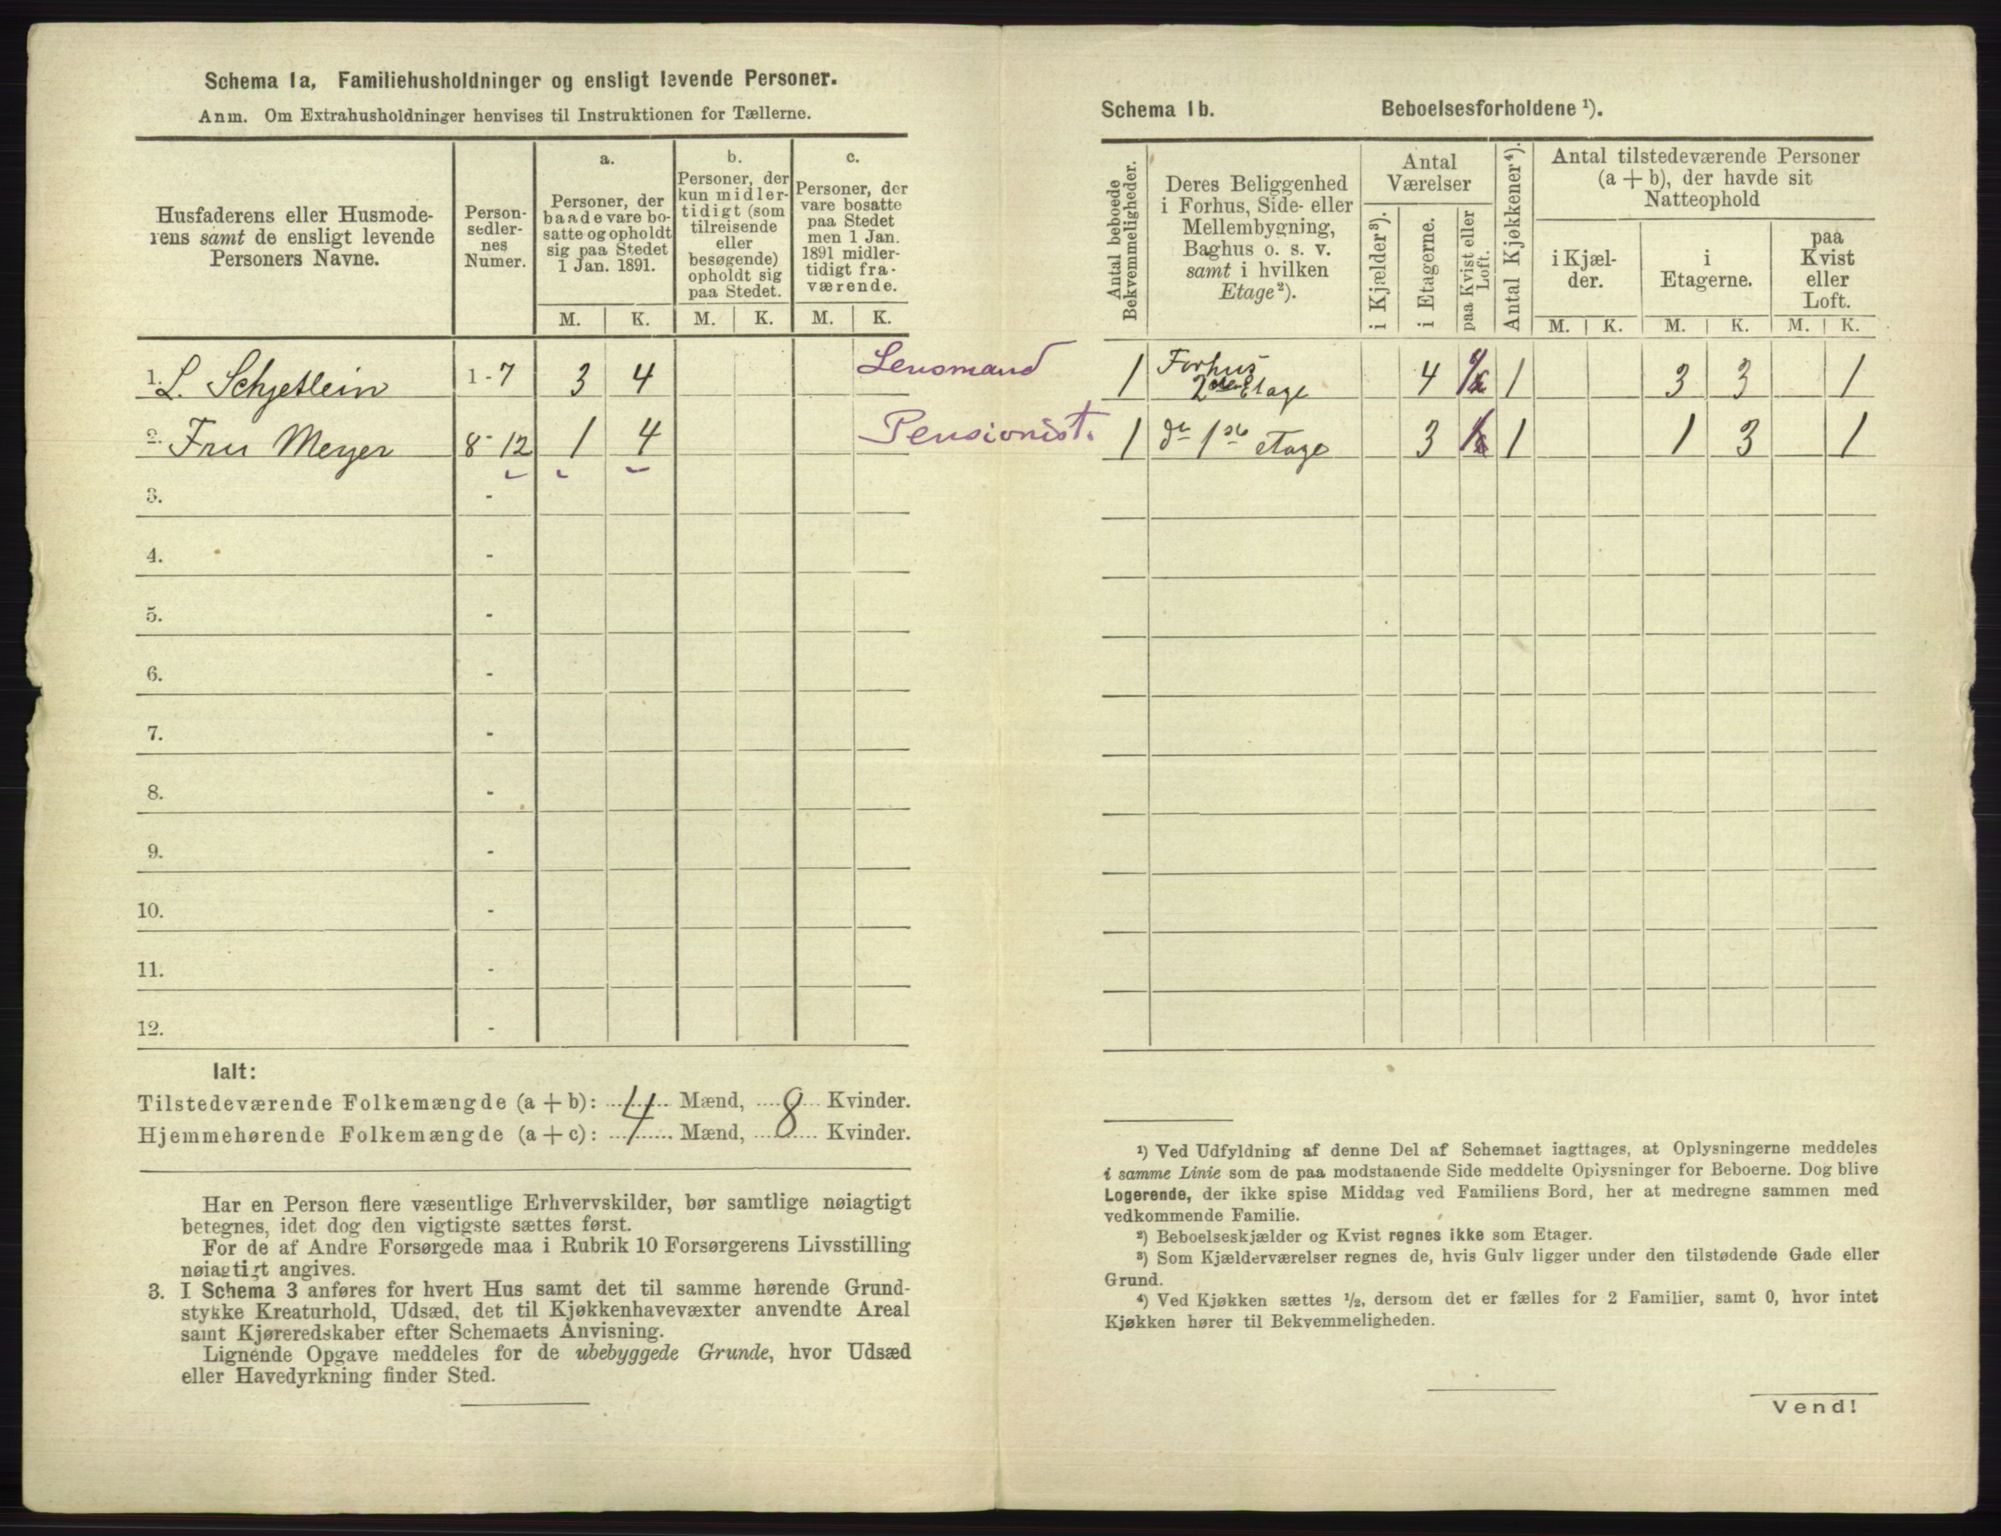 Schema 1a, Familiehusholdninger og ensligt levende Personer.
Anm. Om Extrahusholdninger henvises til Instruktionen for Tællerne.
Husfaderens eller Husmoderens samt de ensligt levende Personers Navne.
Personsedlernes Numer.
a. Personer, der baade vare bosatte og opholdt sig paa Stedet 1 Jan. 1891.
b. Personer, der kun midlertidigt (som tilreisende eller besøgende) opholdt sig paa Stedet.
c. Personer, der vare bosatte paa Stedet men 1 Jan. 1891 midlertidigt fraværende.
M. K. M. K. M. K.
1. L. Schjetlein 1-7 3 4 Lensmand
2. Fru Meyer 8-12 1 4 Pensionist.
3. -
4. -
5. -
6. -
7. -
8. -
9. -
10. -
11. -
12. -
Ialt:
Tilstedeværende Folkemængde (a + b): 4 Mænd, 8 Kvinder.
Hjemmehørende Folkemængde (a + c): Mænd, Kvinder.
Har en Person flere væsentlige Erhvervskilder, bør samtlige nøiagtigt
betegnes, idet dog den vigtigste sættes først.
For de af Andre Forsørgede maa i Rubrik 10 Forsørgerens Livsstilling
nøiagtigt angives.
3. I Schema 3 anføres for hvert Hus samt det til samme hørende Grund-
stykke Kreaturhold, Udsæd, det til Kjøkkenhavevæxter anvendte Areal
samt Kjøreredskaber efter Schemaets Anvisning.
Lignende Opgave meddeles for de ubebyggede Grunde, hvor Udsæd
eller Havedyrkning finder Sted.
Schema 1b. Beboelsesforholdene ¹).
Antal beboede Bekvemmeligheder.
Deres Beliggenhed i Forhus, Side- eller Mellembygning, Baghus o. s. v. samt i hvilken Etage²).
Antal Værelser
i Kjælder³).
i Etagerne.
paa Kvist eller Loft.
Antal Kjøkkener⁴).
Antal tilstedeværende Personer (a + b), der havde sit Natteophold
i Kjælder.
i Etagerne.
paa Kvist eller Loft.
M. K. M. K. M. K.
1 Forhus 2den Etage 4 1 3 3 1
1 do 1ste etage 3 1 1 3 1
¹) Ved Udfyldning af denne Del af Schemaet iagttages, at Oplysningerne meddeles
i samme Linie som de paa modstaaende Side meddelte Oplysninger for Beboerne. Dog blive
Logerende, der ikke spise Middag ved Familiens Bord, her at medregne sammen med
vedkommende Familie.
²) Beboelseskjælder og Kvist regnes ikke som Etager.
³) Som Kjælderværelser regnes de, hvis Gulv ligger under den tilstødende Gade eller
Grund.
⁴) Ved Kjøkken sættes ½, dersom det er fælles for 2 Familier, samt 0, hvor intet
Kjøkken hører til Bekvemmeligheden.
Vend!